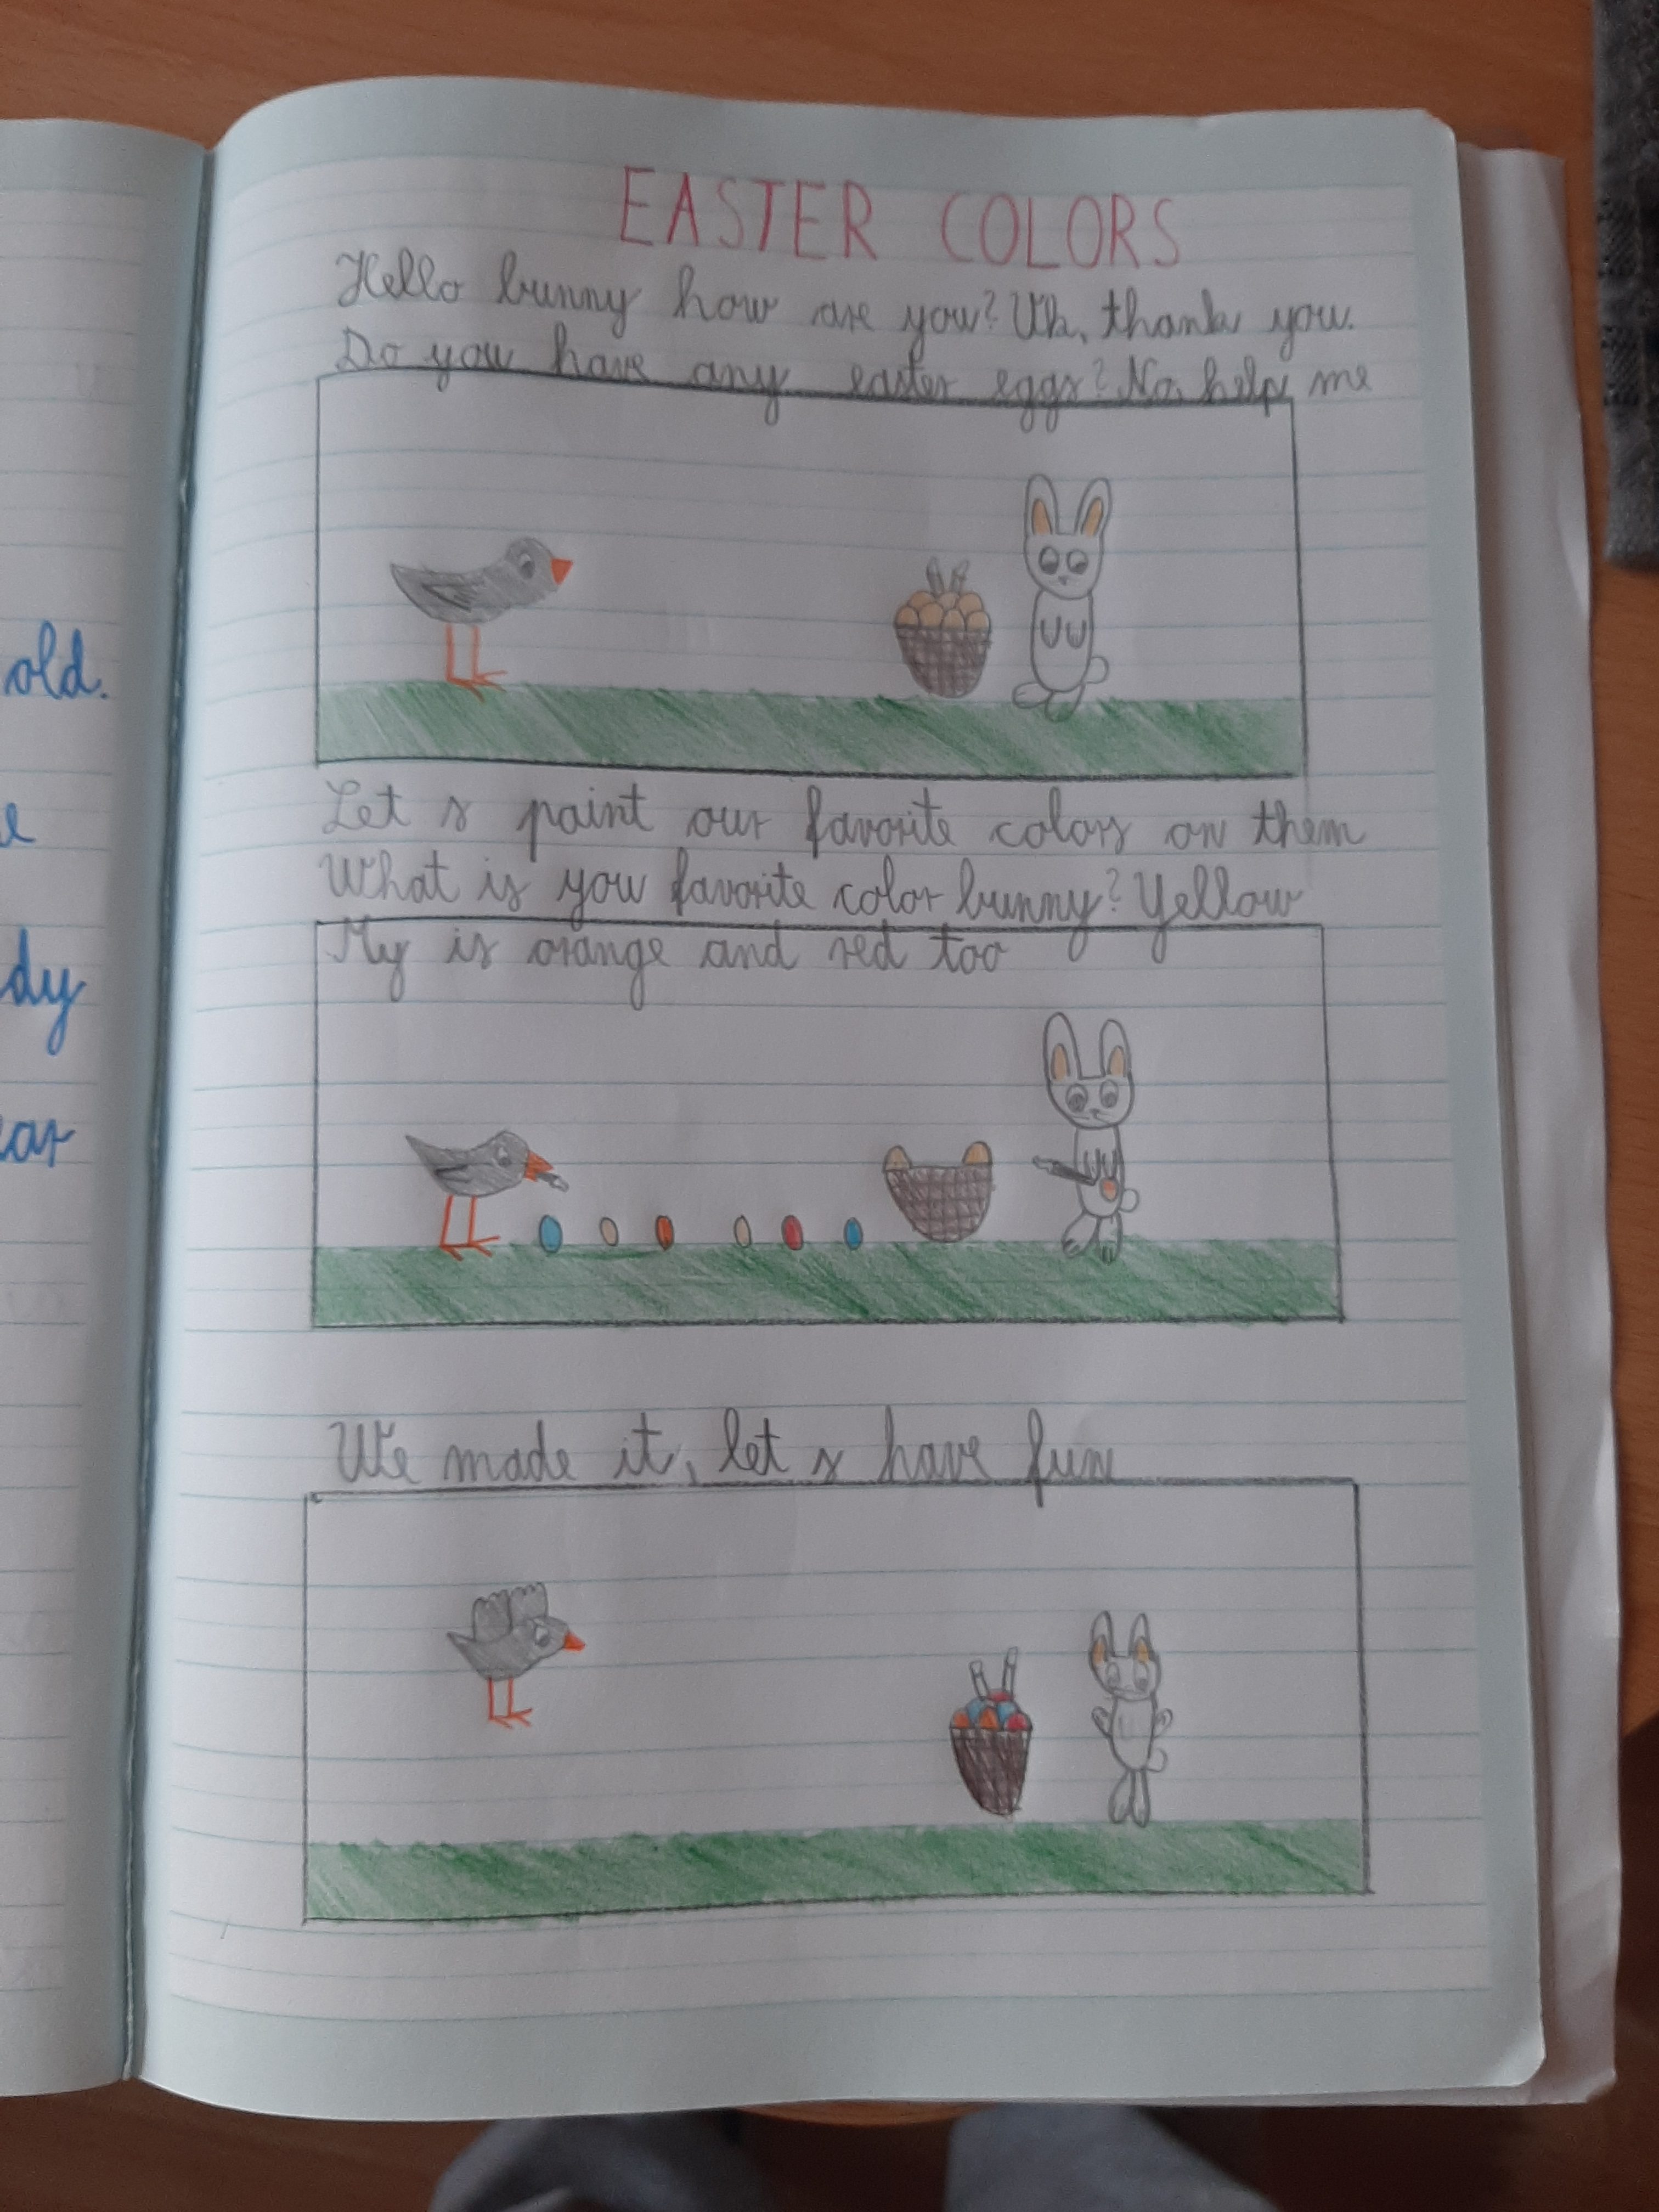 EASTER COLORS
Hello bunny how are you? Uh, thank you.
Do you have any easter eggs? No, help me
Let s paint our favorite colors on them
What is you favorite color bunny? Yellow
My is orange and red too
We made it, let s have fun
old.
dy
ar